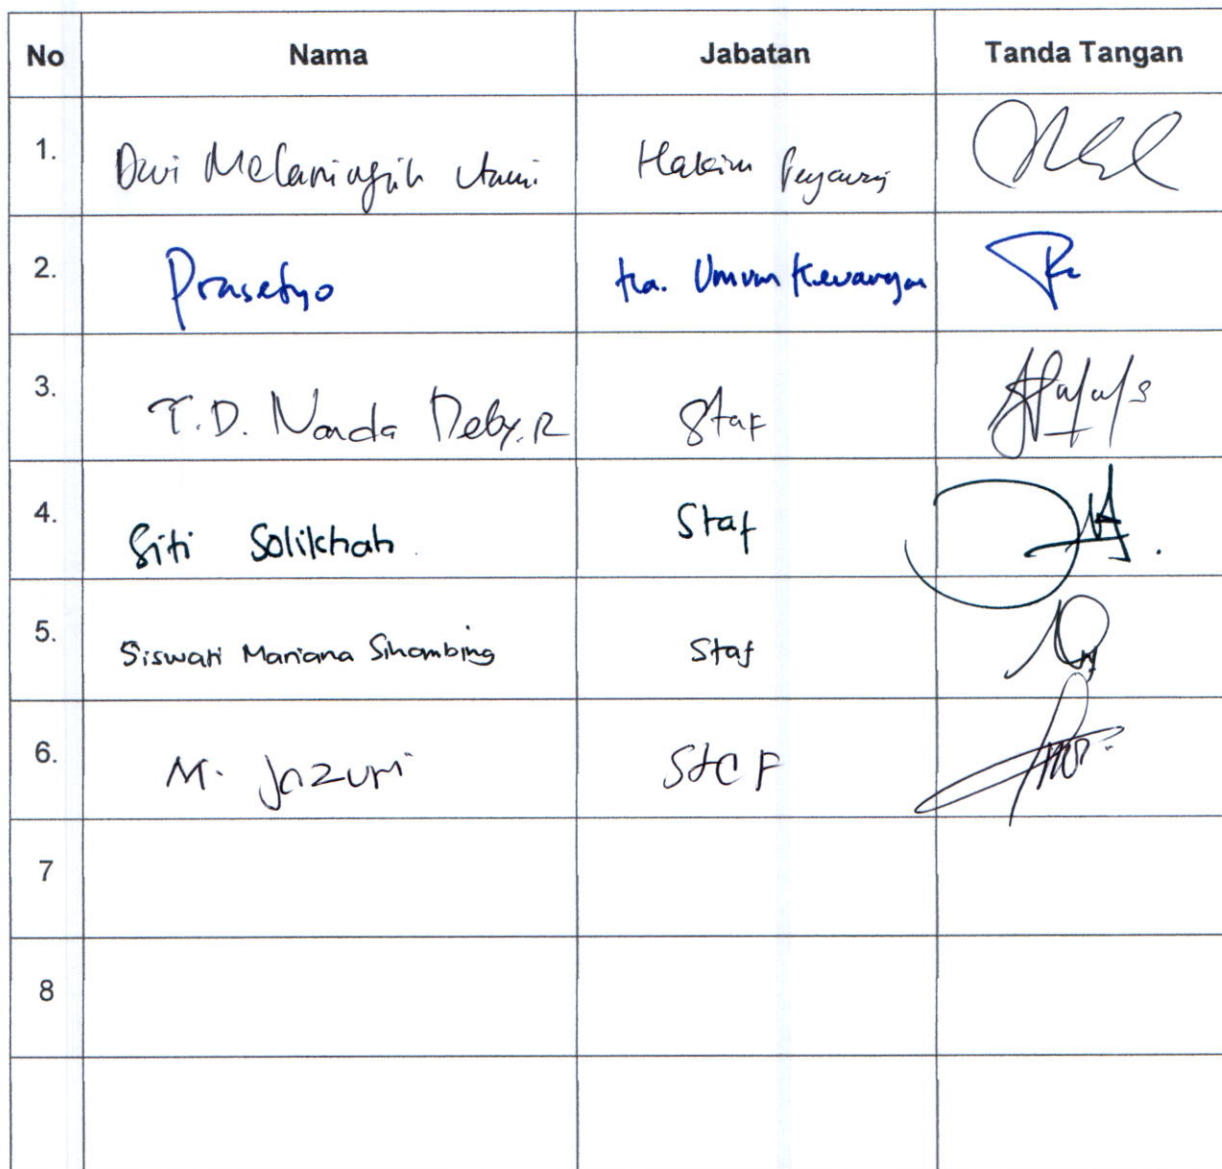 No Nama Jabatan Tanda Tangan
1. Dwi Melaningsih Utami Hakim Pengawas
2. Prasetyo Ka. Umum Keuangan
3. T.D. Nanda Deby.R Staf
4. Siti Solikhah Staf
5. Siswati Mariana Sihombing Staf
6. M. Jazuri Staf
7
8